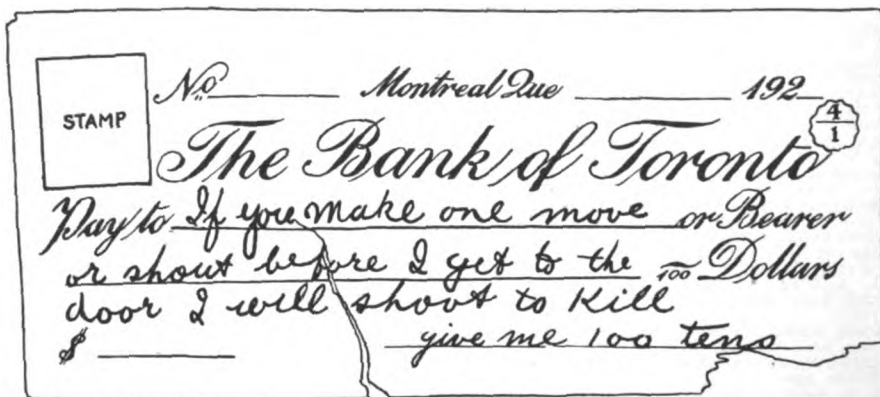 No. Montreal Que 192
STAMP
4
1
The Bank of Toronto
Pay to If you make one move or Bearer
or shout before I get to the 100 Dollars
door I will shoot to Kill
$ give me 100 tens